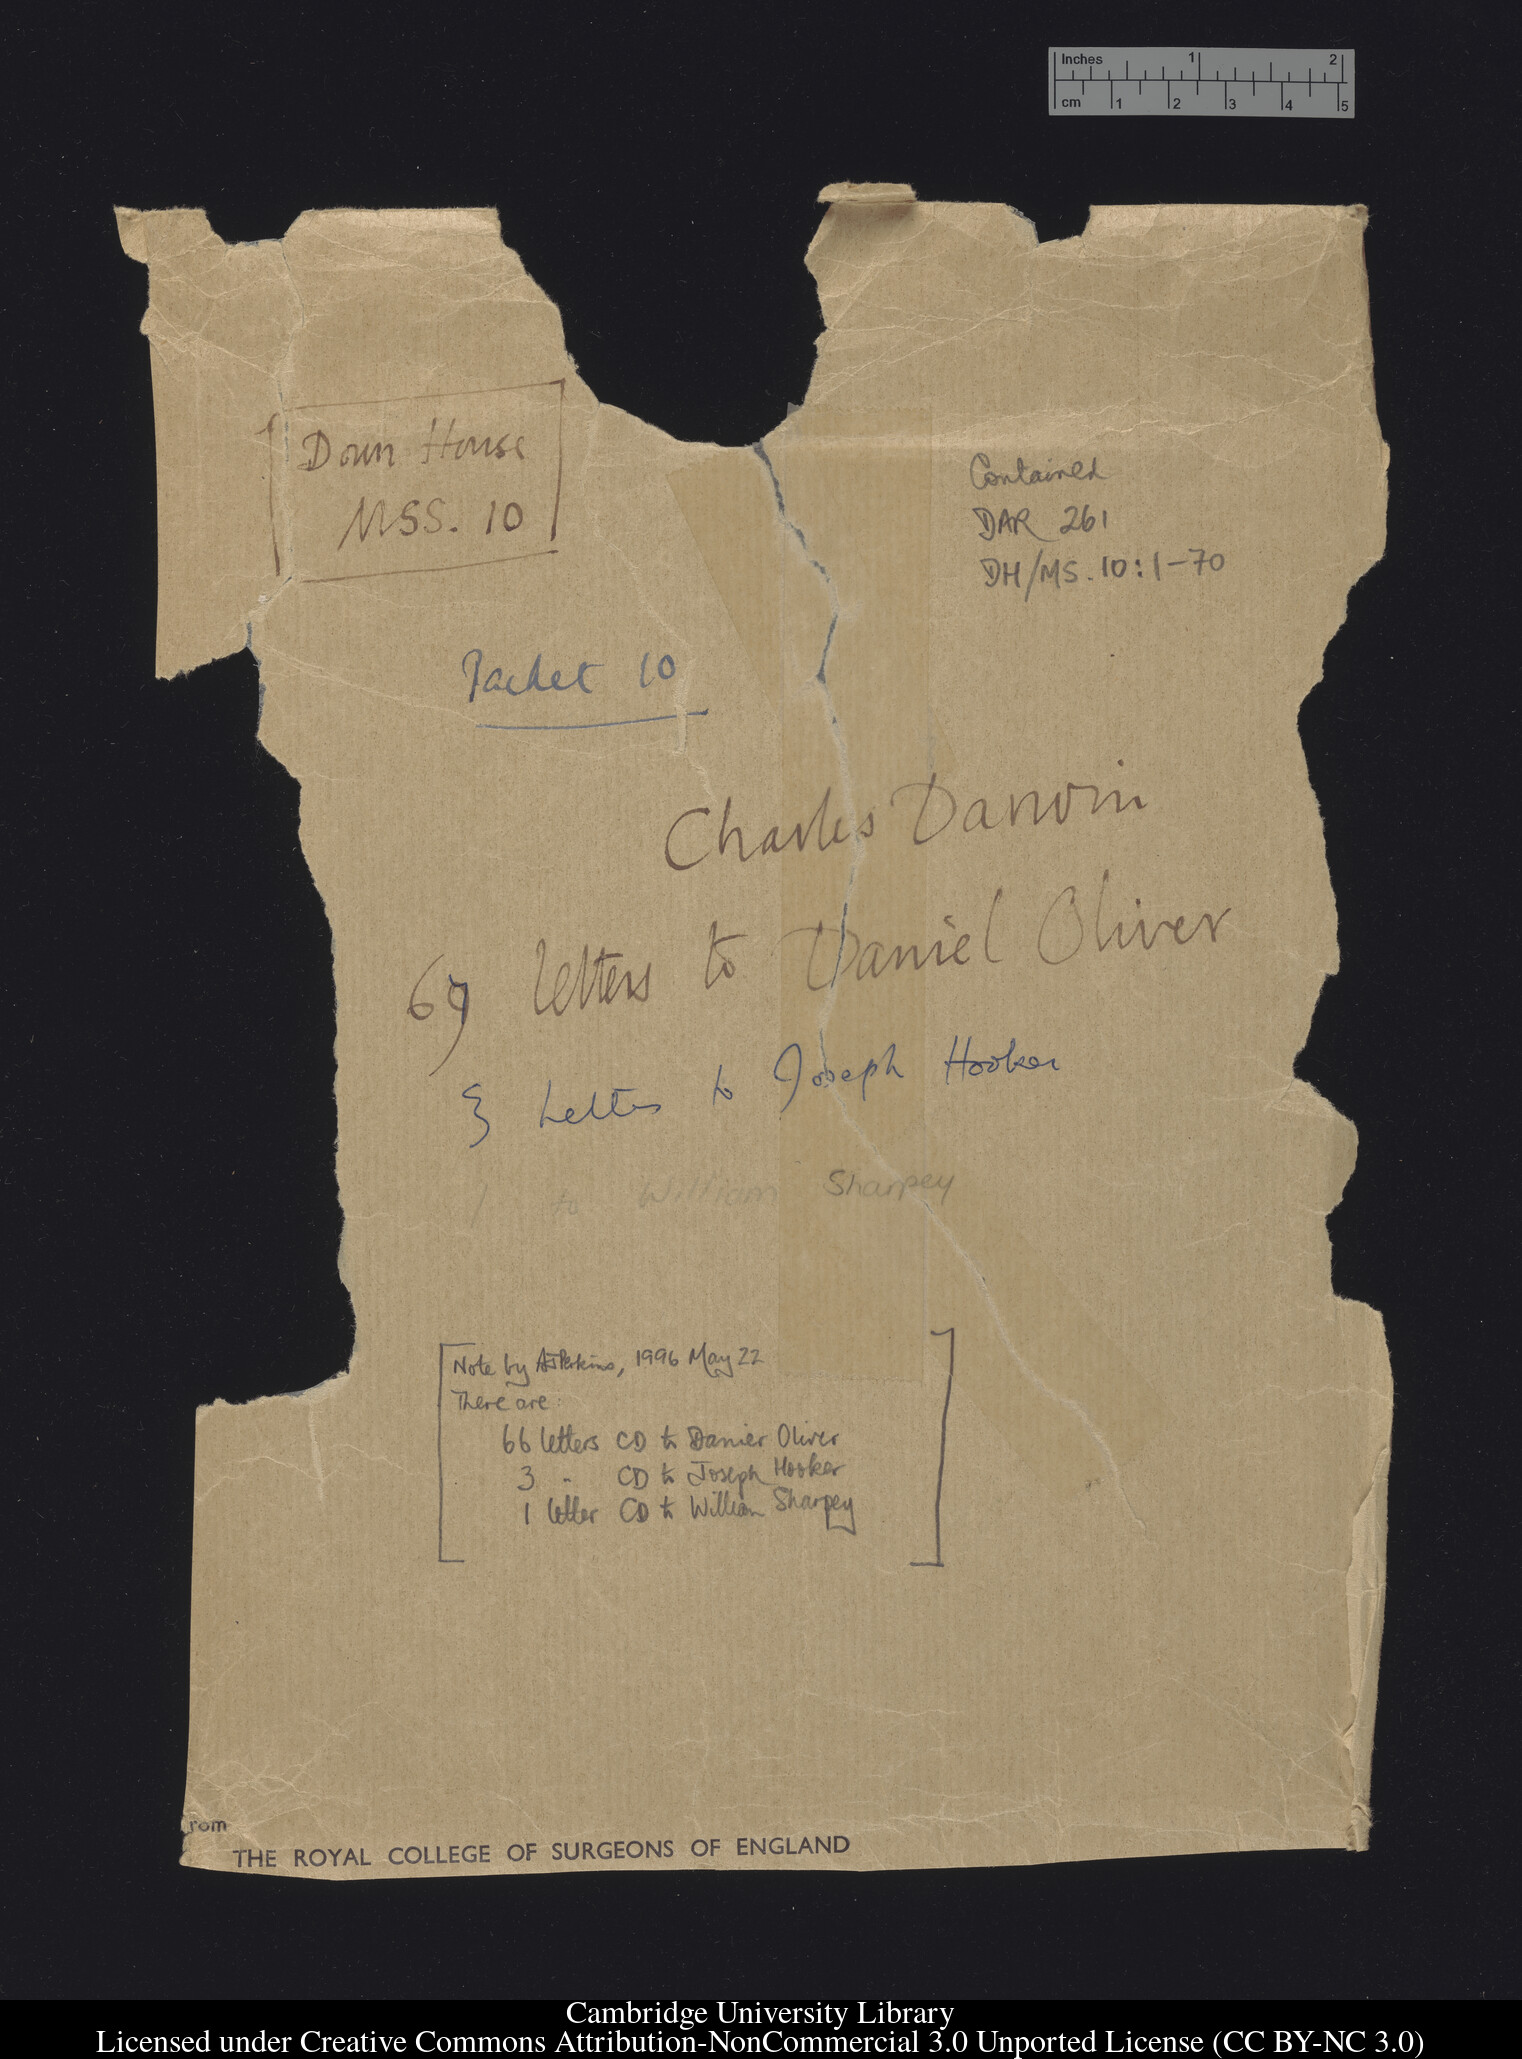 Inches 1 2
cm 1 2 3 4 5
Down House
MSS. 10
Contained
DAR 261
DH/MS. 10:1-70
Packet 10
Charles Darwin
letters to Daniel Oliver
3 Letters to Joseph Hooker
1 to William Sharpey
Note by , 1996 May 22
There are:
66 letters CD to Daniel Oliver
3 " CD to Joseph Hooker
1 letter CD to William Sharpey
rom
THE ROYAL COLLEGE OF SURGEONS OF ENGLAND
Cambridge University Library
Licensed under Creative Commons Attribution-NonCommercial 3.0 Unported License (CC BY-NC 3.0)